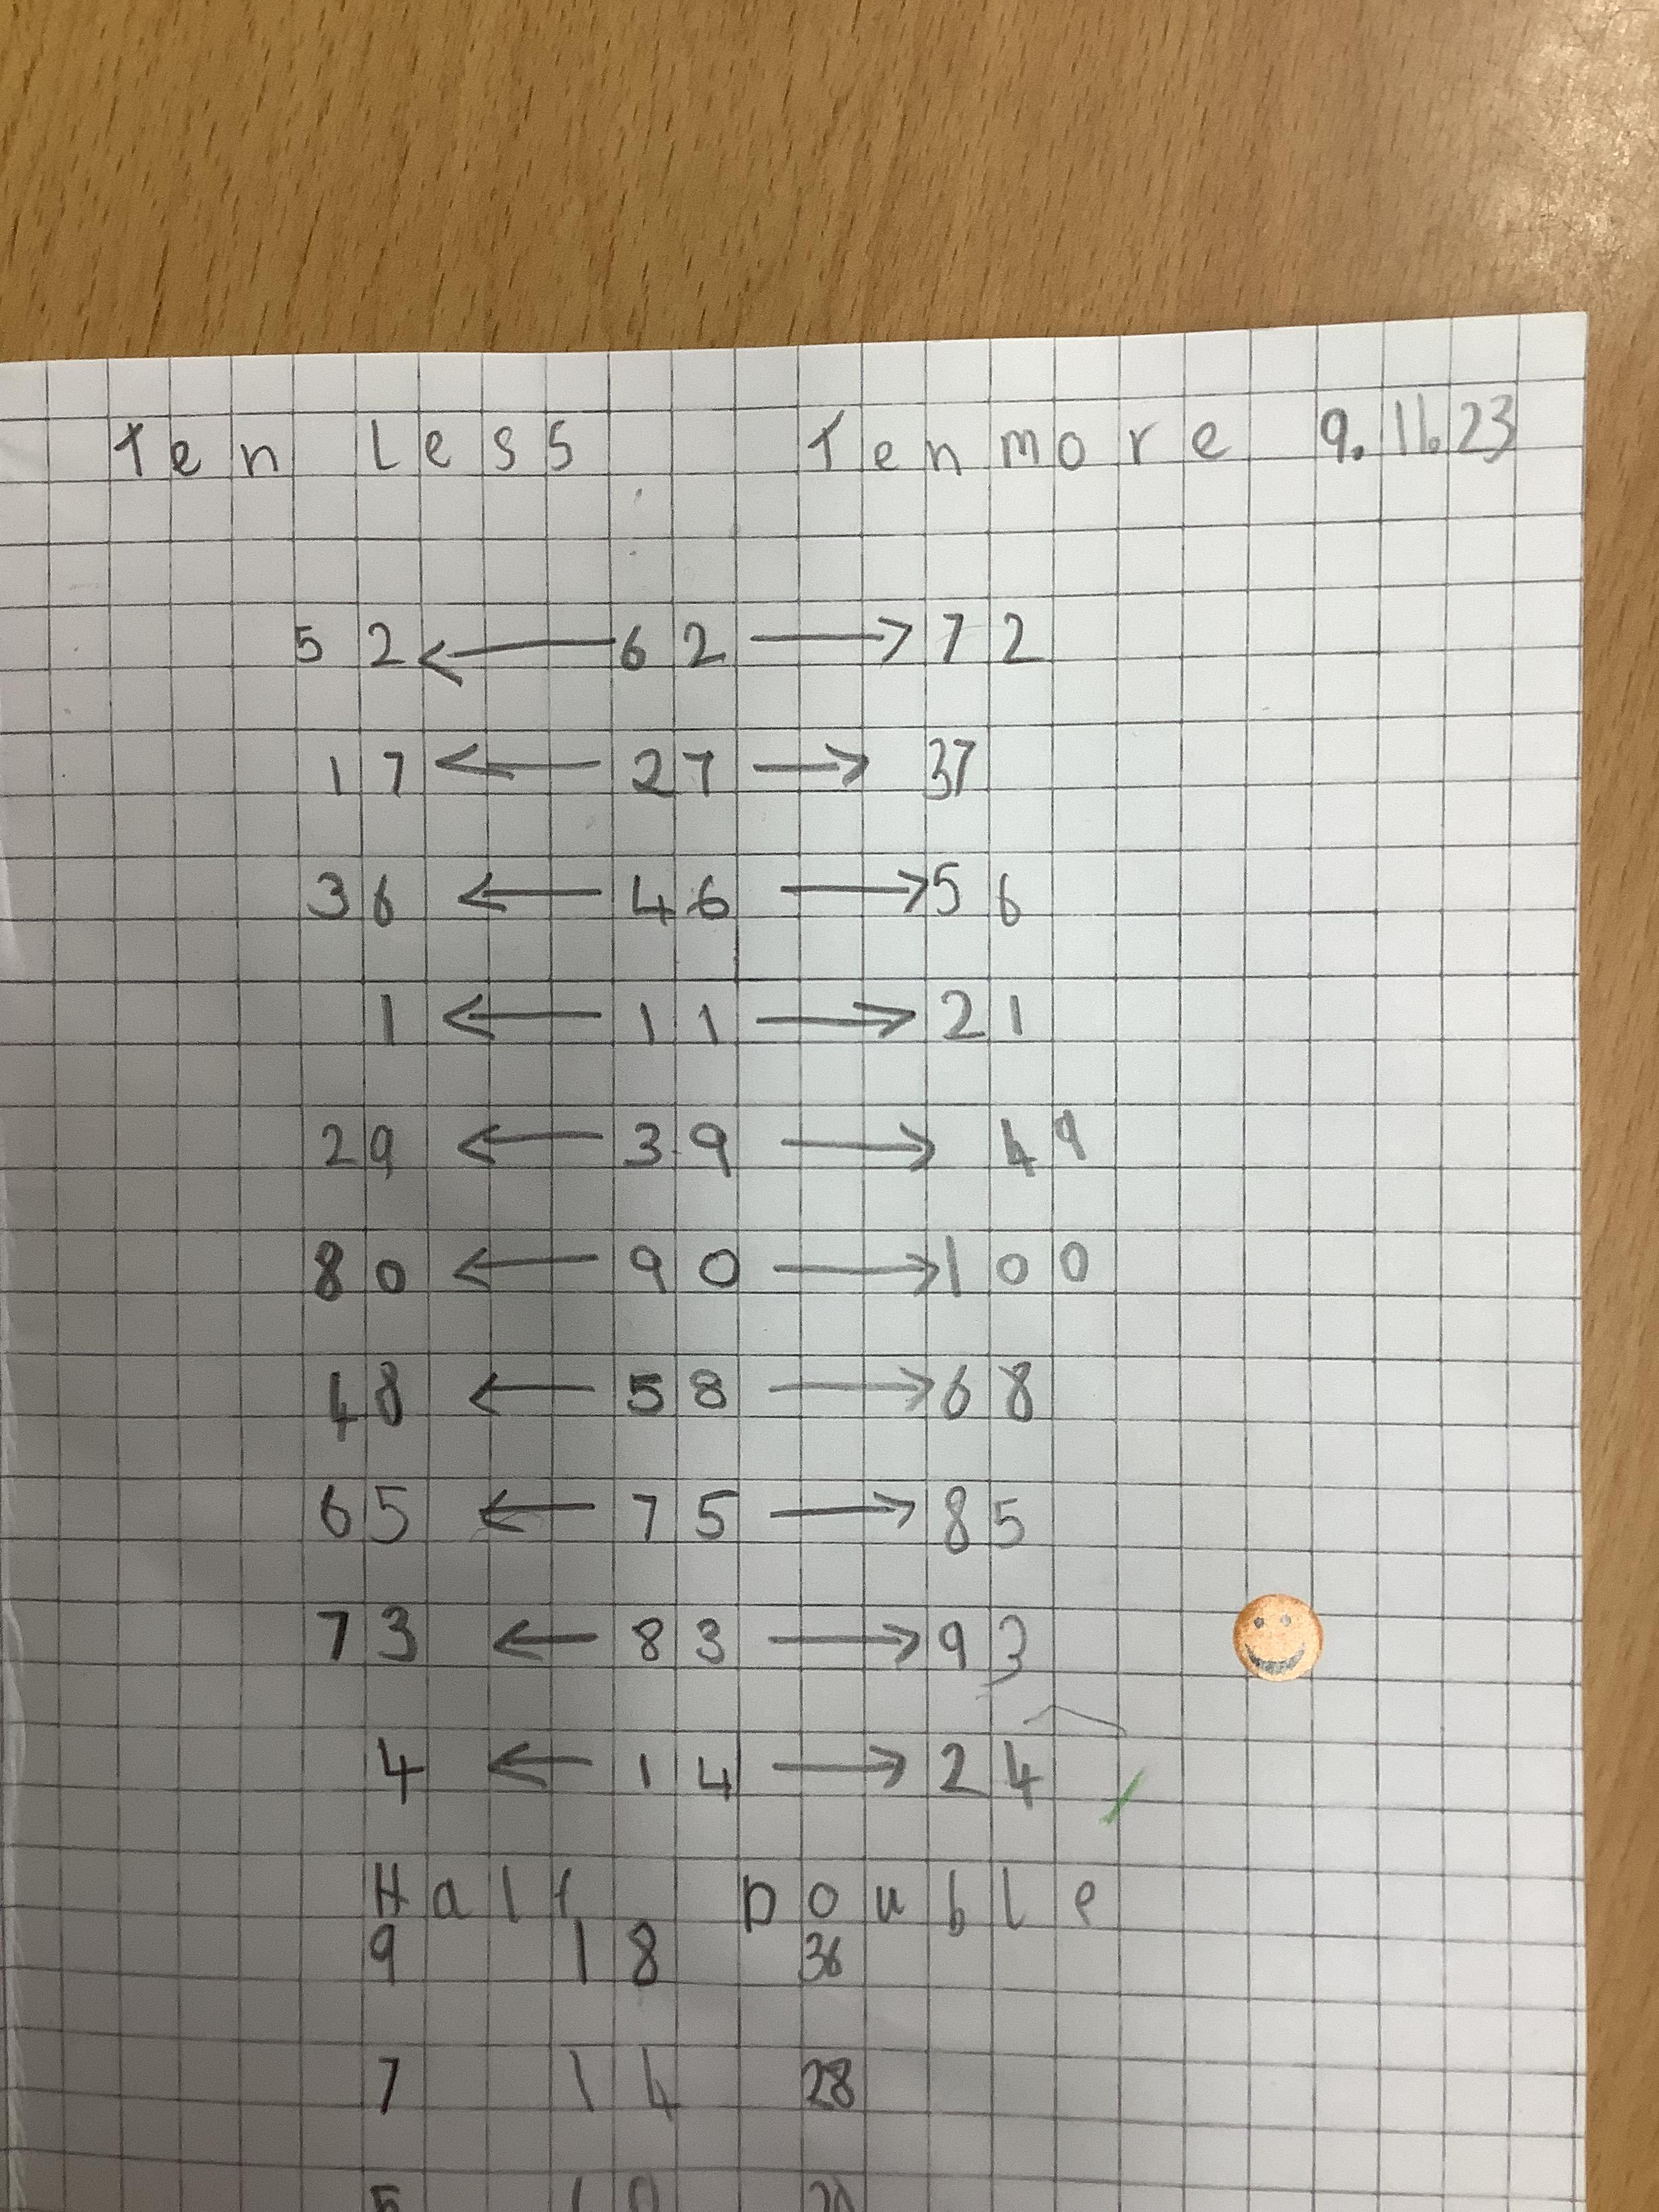 Ten Less Ten more 9.11.23
52 ← 62 → 72
17 ← 27 → 37
36 ← 46 → 56
1 ← 11 → 21
29 ← 39 → 49
80 ← 90 → 100
48 ← 58 → 68
65 ← 75 → 85
73 ← 83 → 93
4 ← 14 → 24
Half Double
9 18 36
7 14 28
5 10 20